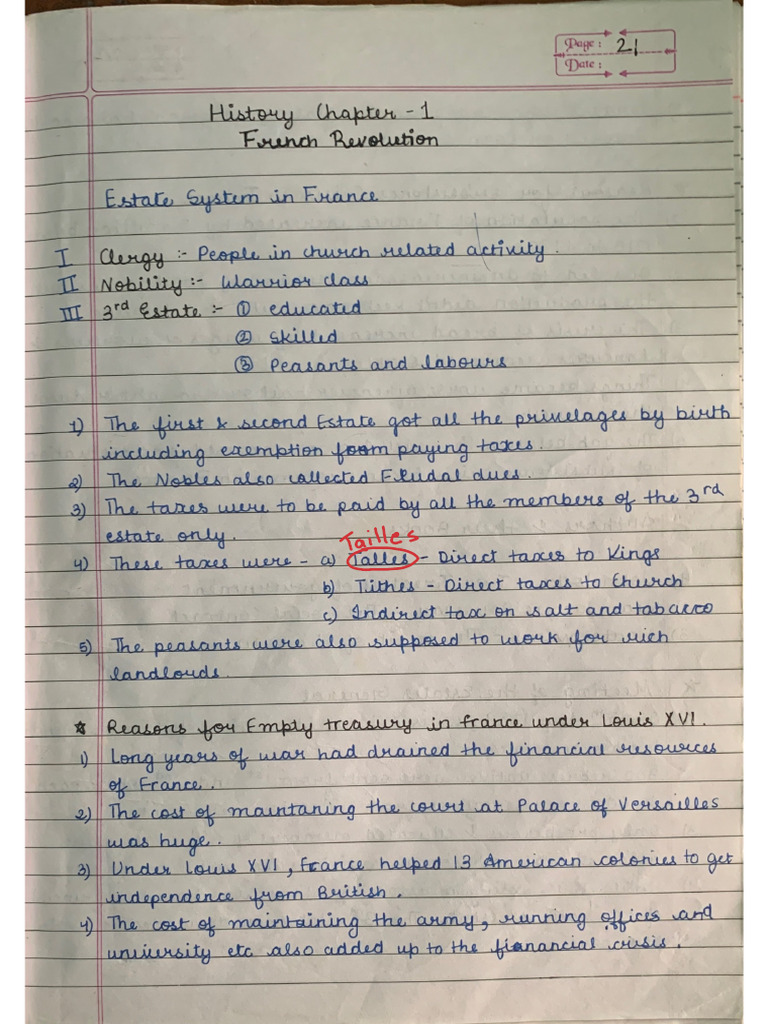 Page: 21
Date:
History Chapter - 1
French Revolution
Estate System in France
I Clergy :- People in church related activity.
II Nobility :- Warrior class
III 3rd Estate :- ① educated
② Skilled
③ Peasants and labours
1) The first & second Estate got all the privelages by birth
including exemption from paying taxes.
2) The Nobles also collected Feudal dues.
3) The taxes were to be paid by all the members of the 3rd
estate only.
Tailles
4) These taxes were - a) Talles - Direct taxes to Kings
b) Tithes - Direct taxes to Church
c) Indirect tax on salt and tabacco
5) The peasants were also supposed to work for rich
landlords.
* Reasons for Empty treasury in france under Louis XVI.
1) Long years of war had drained the financial resources
of France.
2) The cost of maintaning the court at Palace of Versailles
was huge.
3) Under Louis XVI, France helped 13 American colonies to get
independence from British.
4) The cost of maintaining the army, running offices and
university etc also added up to the financial crisis.